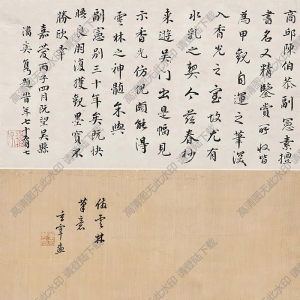 商邱陳伯恭副憲素擅
書名又精鑒賞所收皆
為甲觀自運之筆深
入香光之室故尤有
水乳之契人茲春杪
來遊吳門出是幅見
示香光仿倪頗能得
雲林之神髓余與
副憲別三十年矣既
晤良朋復獲觀墨寶不
勝欣幸
嘉慶丙子四月既望吳縣
潘奕雋題時年七十有七
仿雲林
筆意
玄宰畫